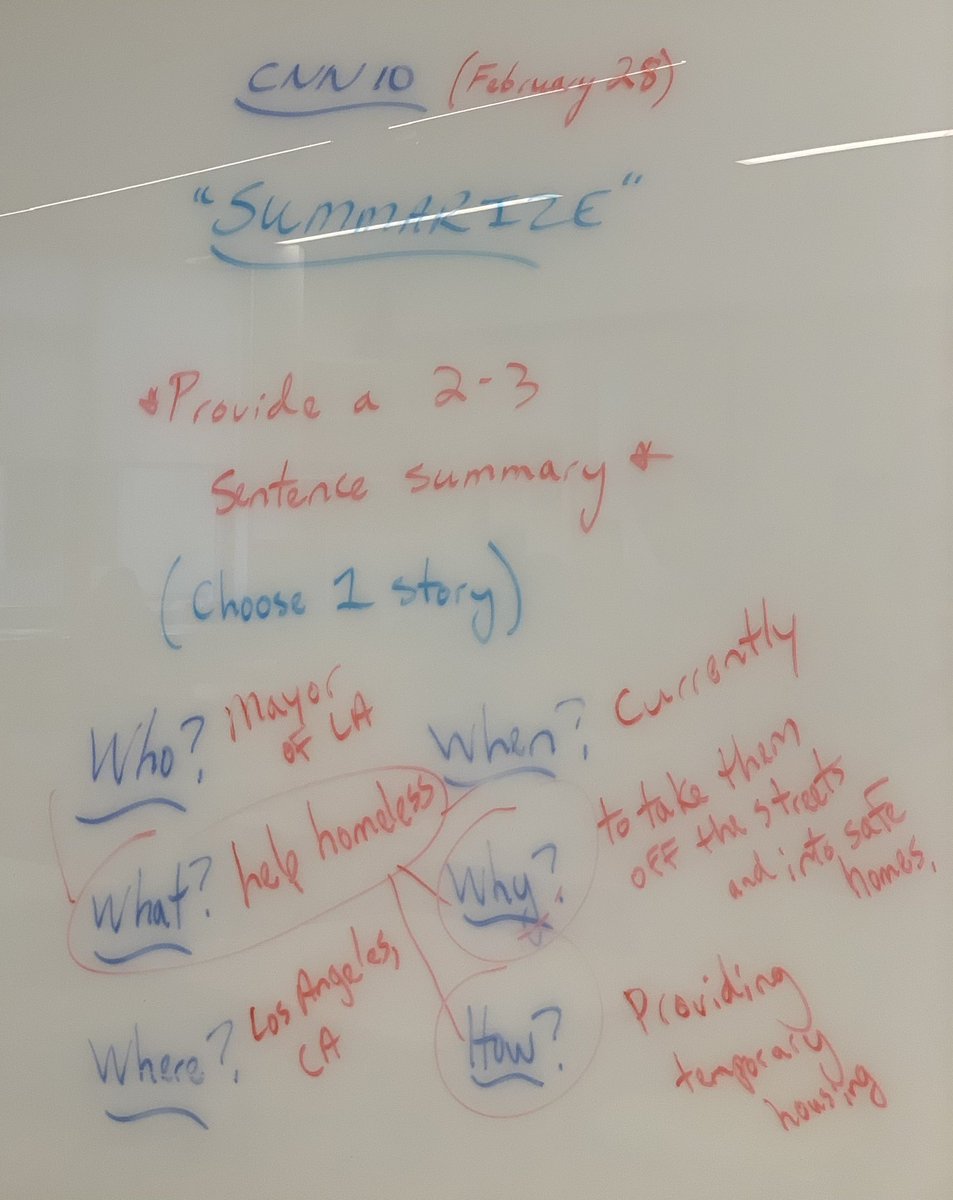 CNN 10 (February 28)
"SUMMARIZE"
*Provide a 2-3
Sentence summary *
(Choose 1 story)
Who? Mayor
of LA
When? Currently
What? help homeless
Why? to take them
off the streets
and into safe
homes.
Where? Los Angeles,
CA
How? Providing
temporary
housing